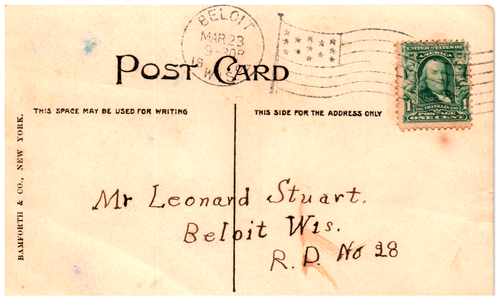 BELOIT
MAR 23
WIS.
POST CARD
UNITED STATES OF AMERICA
FRANKLIN
1 POSTAGE 1
ONE CENT
THIS SPACE MAY BE USED FOR WRITING
THIS SIDE FOR THE ADDRESS ONLY
BAMFORTH & CO., NEW YORK.
Mr Leonard Stuart.
Beloit Wis.
R. D. No 28